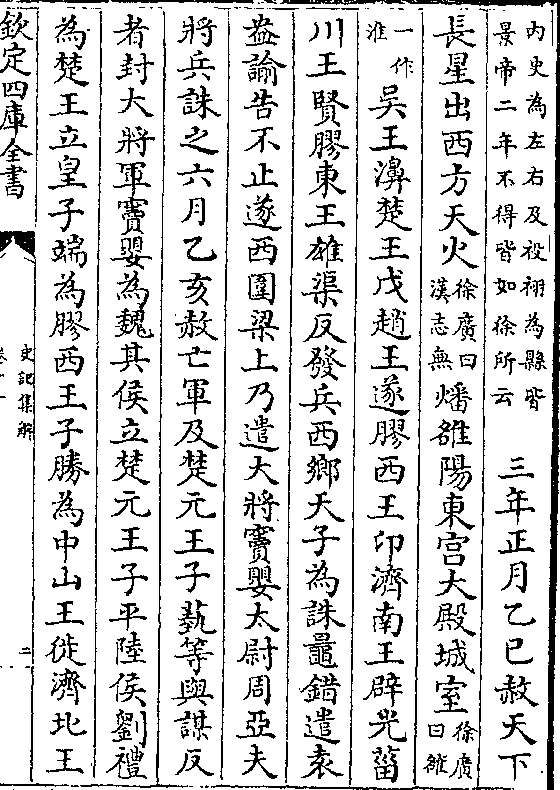 内史為左右及祋祤為縣皆
景帝二年不得皆如徐所云
三年正月乙巳赦天下
長星出西方天火徐廣曰漢志無燔雒陽東宫大殿城室徐廣曰雒
一作淮吳王濞楚王戊趙王遂膠西王卬濟南王辟光菑
川王賢膠東王雄渠反發兵西鄉天子為誅鼂錯遣袁
盎諭告不止遂西圍梁上乃遣大將竇嬰太尉周亞夫
將兵誅之六月乙亥赦亡軍及楚元王子蓺等與謀反
者封大將軍竇嬰為魏其侯立楚元王子平陸侯劉禮
為楚王立皇子端為膠西王子勝為中山王徙濟北王
欽定四庫全書
史記集解
二